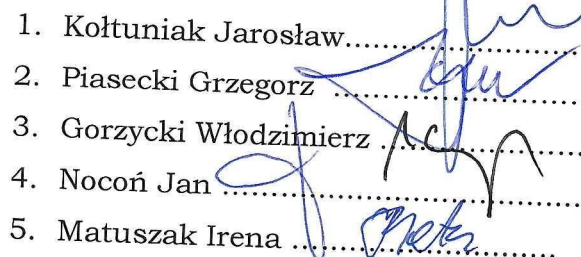 1. Kołtuniak Jarosław....................
2. Piasecki Grzegorz ....................
3. Gorzycki Włodzimierz ....................
4. Nocoń Jan ....................
5. Matuszak Irena ....................